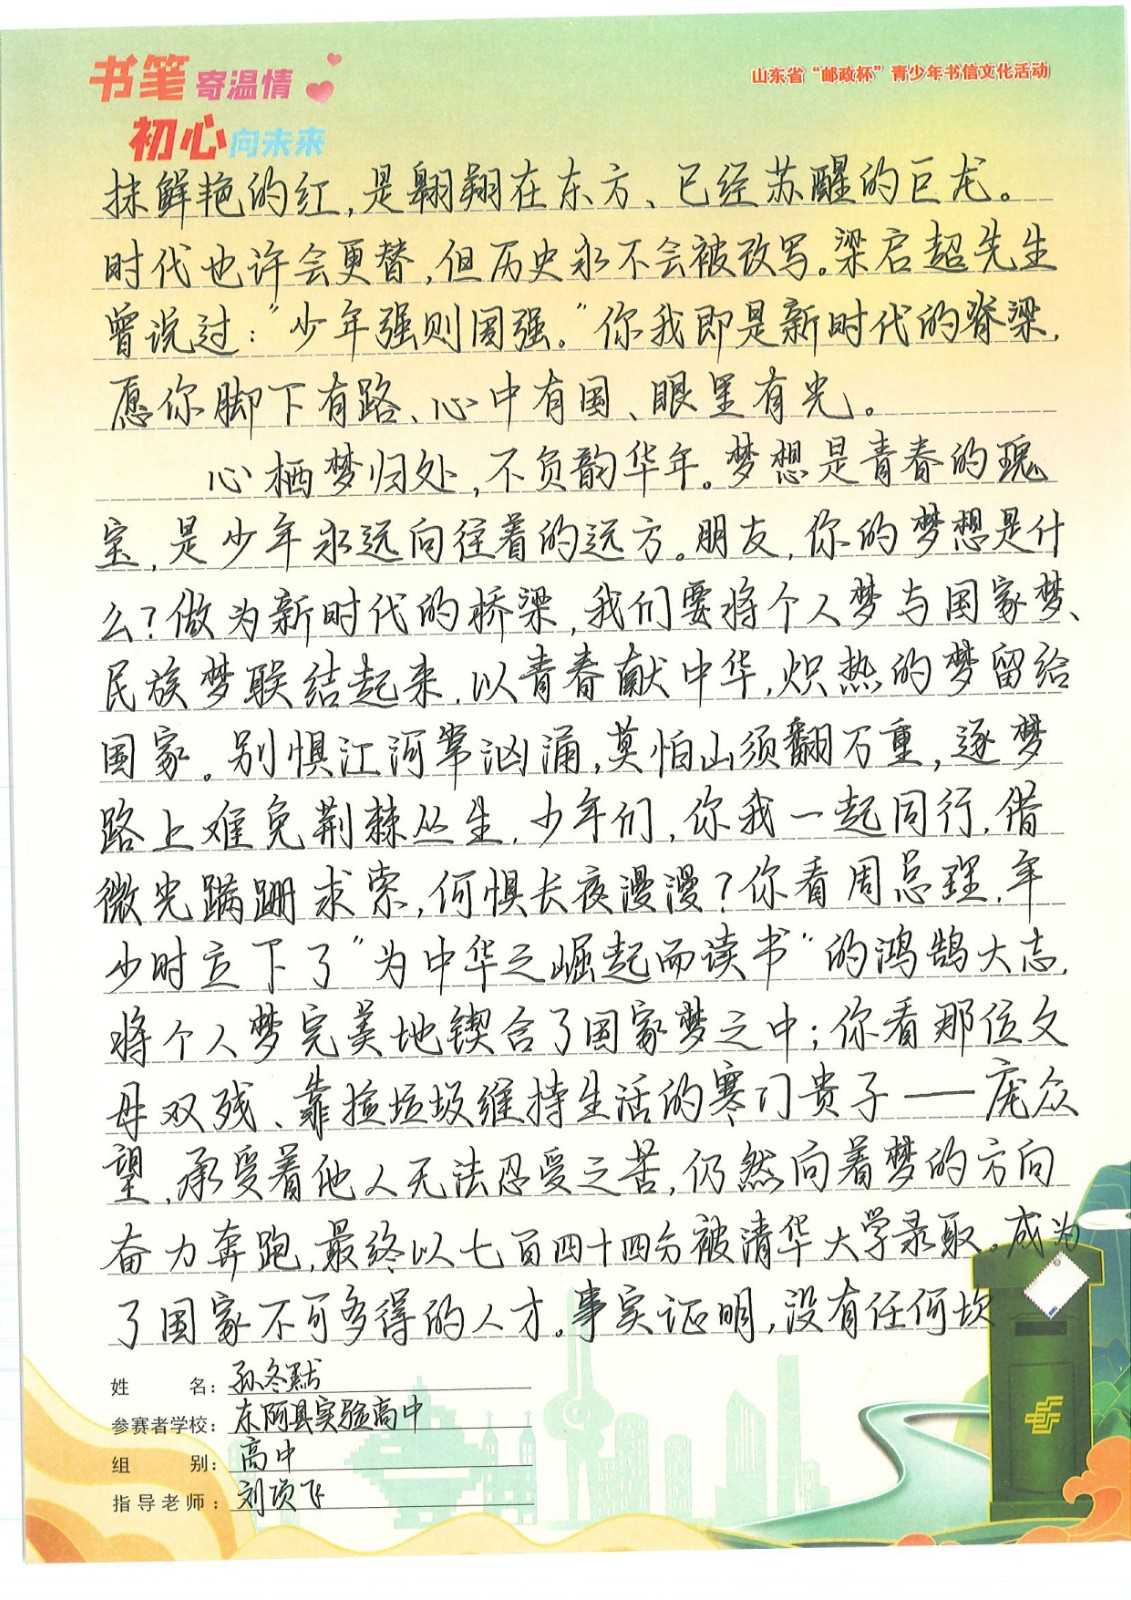 书笔寄温情
初心向未来
山东省“邮政杯”青少年书信文化活动
抹鲜艳的红,是翱翔在东方、已经苏醒的巨龙。
时代也许会更替,但历史永不会被改写。梁启超先生
曾说过:“少年强则国强。”你我即是新时代的脊梁,
愿你脚下有路、心中有国、眼里有光。
心栖梦归处,不负韵华年。梦想是青春的瑰
宝,是少年永远向往着的远方。朋友,你的梦想是什
么?做为新时代的桥梁,我们要将个人梦与国家梦、
民族梦联结起来,以青春献中华,炽热的梦留给
国家。别惧江河常汹涌,莫怕山须翻万重,逐梦
路上难免荆棘丛生,少年们,你我一起同行,借
微光蹒跚求索,何惧长夜漫漫?你看周总理,年
少时立下了“为中华之崛起而读书”的鸿鹄大志,
将个人梦完美地锲合了国家梦之中;你看那位父
母双残、靠捡垃圾维持生活的寒门贵子——庞众
望,承受着他人无法忍受之苦,仍然向着梦的方向
奋力奔跑,最终以七百四十四分被清华大学录取。成为
了国家不可多得的人才。事实证明,没有任何坎
姓 名:孙冬默
参赛者学校:东阿县实验高中
组 别:高中
指导老师:刘项飞